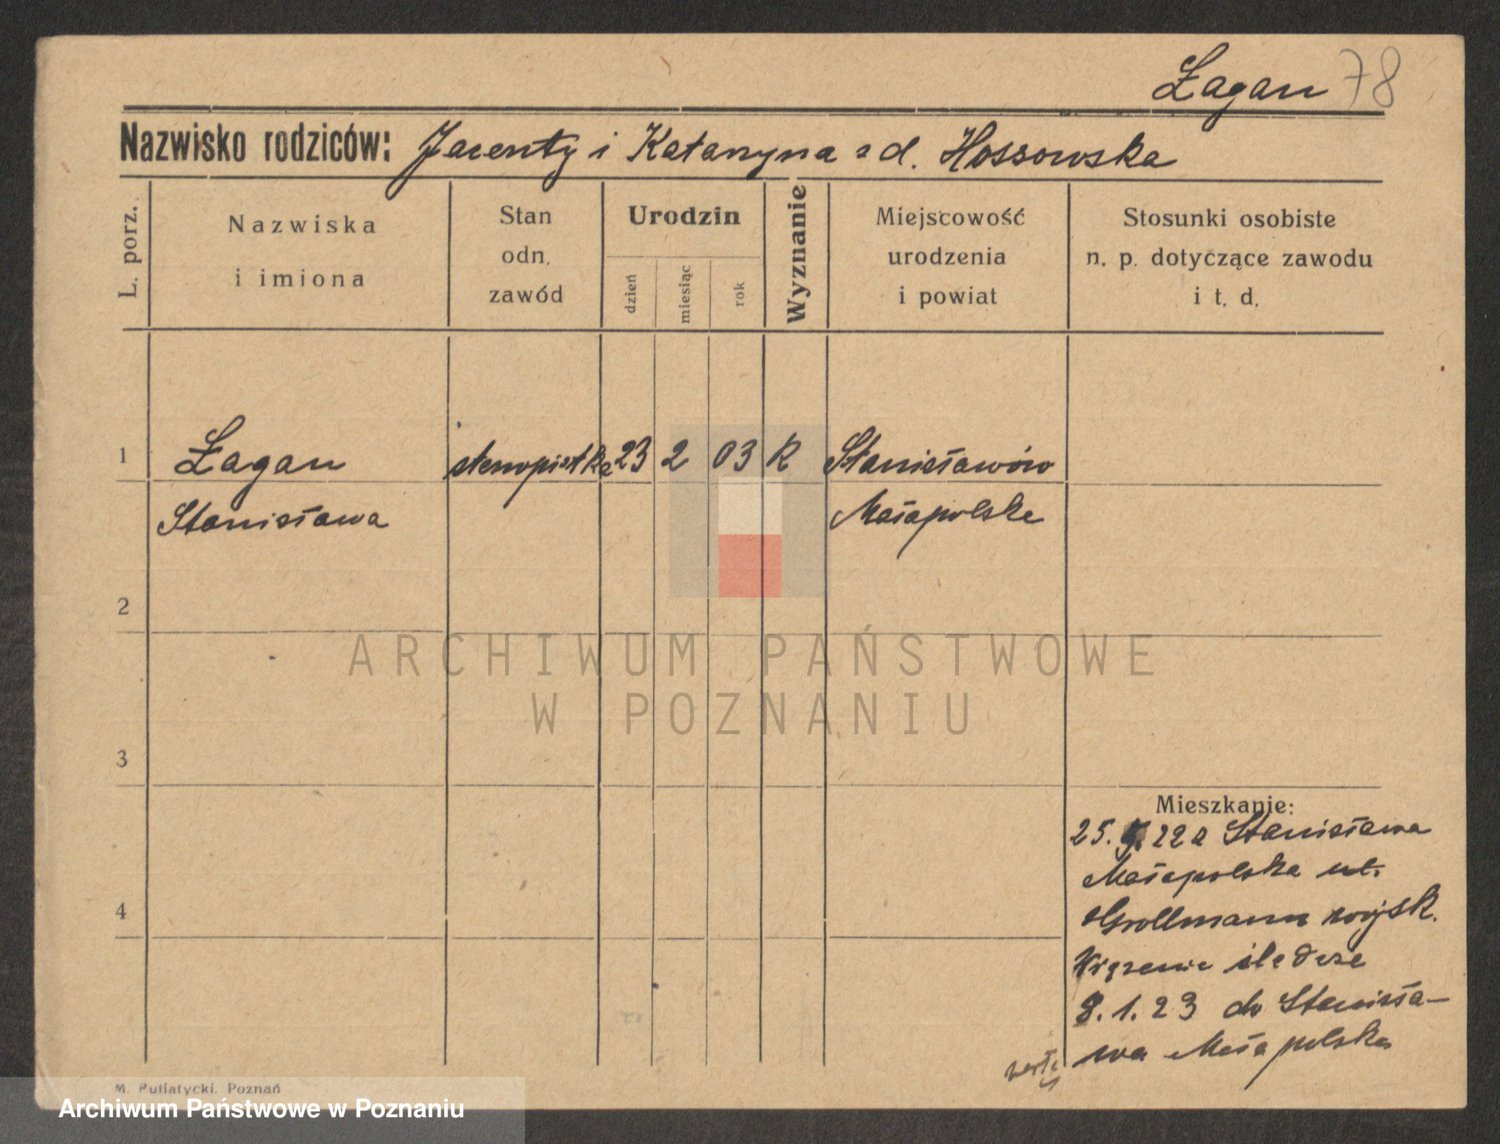 Łagan 78
Nazwisko rodziców: Jacenty i Katarzyna z d. Hossowska
L. porz.
Nazwiska
i imiona
Stan
odn.
zawód
Urodzin
dzień
miesiąc
rok
Wyznanie
Miejscowość
urodzenia
i powiat
Stosunki osobiste
n. p. dotyczące zawodu
i t. d.
1 Łagan stenopistka 23 2 03 K Stanisławów
Stanisława Małopolska
2
3
4
Mieszkanie:
25. 22 z Stanisława
Małopolska ul.
Grollmann wojsk.
Więzienie śledcze
8. 1. 23 do Stanisła-
wa Małopolska
M. Putiatycki, Poznań
ARCHIWUM PAŃSTWOWE
W POZNANIU
Archiwum Państwowe w Poznaniu